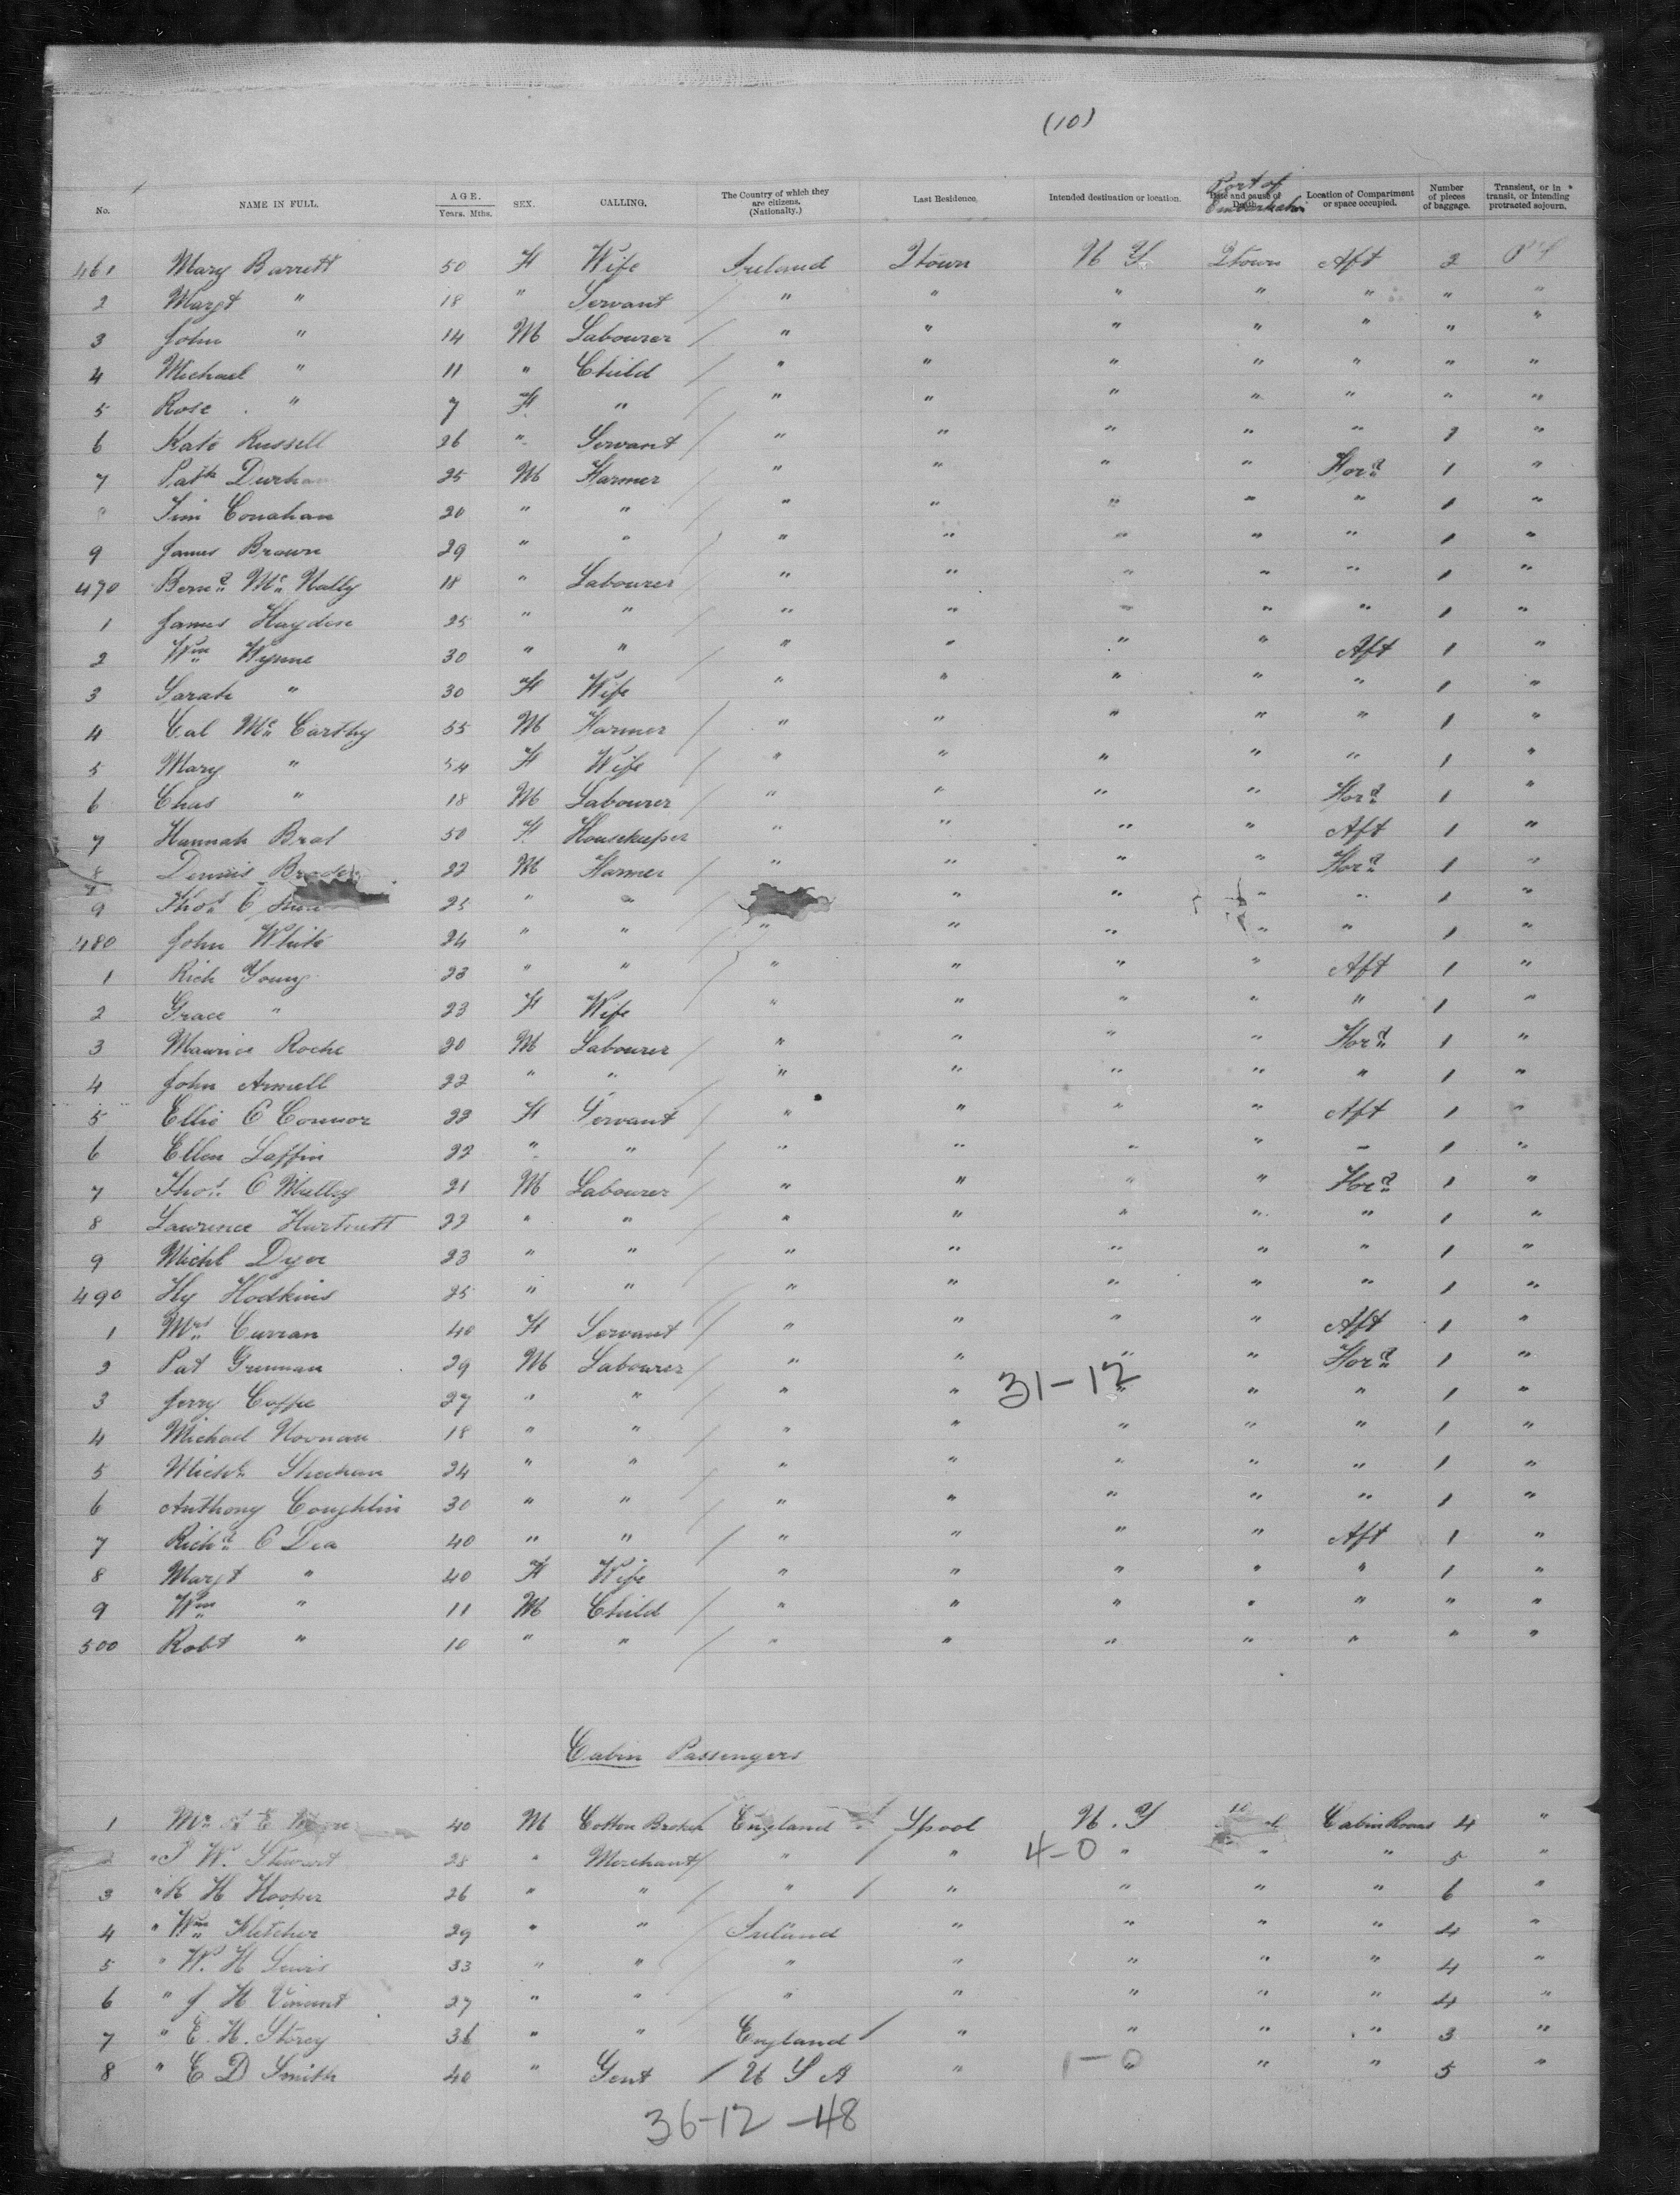 (10)
No. NAME IN FULL. AGE. Years. Mths. SEX. CALLING. The Country of which they are citizens. (Nationality.) Last Residence. Intended destination or location. Date and cause of Death. Port of Embarkation Location of Compartment or space occupied. Number of pieces of baggage. Transient, or in transit, or intending protracted sojourn.
461 Mary Barrett 50 F Wife Ireland Qtown N Y Qtown Aft 2
2 Margt " 18 " Servant " " " " " " "
3 John " 14 M Labourer " " " " " " "
4 Michael " 11 " Child " " " " " " "
5 Rose " 7 F " " " " " " " "
6 Kate Russell 26 " Servant " " " " " "
7 Patk Durham 25 M Farmer " " " " For'd 1 "
8 Jim Conahan 20 " " " " " " " 1 "
9 James Brown 29 " " " " " " " 1 "
470 Bernd McNally 18 " Labourer " " " " " 1 "
1 James Hayden 25 " " " " " " " 1 "
2 Wm Wynne 30 " " " " " " Aft 1 "
3 Sarah " 30 F Wife " " " " " 1 "
4 Cal McCarthy 55 M Farmer " " " " " 1 "
5 Mary " 54 F Wife " " " " " 1 "
6 Chas " 18 M Labourer " " " " For'd 1 "
7 Hannah 50 F Housekeeper " " " " Aft 1 "
8 Dennis 22 M Farmer " " " " For'd 1 "
9 Thos O 25 " " " " " " 1 "
480 John White 24 " " " " " " " 1 "
1 Rich Young 23 " " " " " " Aft 1 "
2 Grace " 23 F Wife " " " " " 1 "
3 Maurice Roche 20 M Labourer " " " " For'd 1 "
4 John 22 " " " " " " " 1 "
5 Ellie O Connor 23 F Servant " " " " Aft 1 "
6 Ellen Laffin 22 " " " " " " " 1 "
7 Thos O Malley 21 M Labourer " " " " For'd 1 "
8 Lawrence 22 " " " " " " " 1 "
9 Michl Dyer 23 " " " " " " " 1 "
490 Hy Hodkins 25 " " " " " " " 1 "
1 Mrs Curran 40 F Servant " " " " Aft 1 "
2 Pat Grennan 29 M Labourer " " " " For'd 1 "
31-12
3 Jerry Coffee 27 " " " " " " " 1 "
4 Michael Noonan 18 " " " " " " " 1 "
5 Michl Sheehan 24 " " " " " " " 1 "
6 Anthony Coughlin 30 " " " " " " " 1 "
7 Richd O Dea 40 " " " " " " Aft 1 "
8 Margt " 40 F Wife " " " " " 1 "
9 Wm " 11 M Child " " " " " " "
500 Robt " 10 " " " " " " " " "
Cabin Passengers
1 Mr E 40 M Cotton Broker England Lpool N.Y Cabin Rooms 4 "
2 " W. Stewart 28 " Merchant " " " " " 5 "
4-0
3 " K H Hooper 26 " " " " " " " 6 "
4 " Wm Fletcher 29 " " Ireland " " " " 4 "
5 " W. H Lewis 33 " " " " " " " 4 "
6 " J H Vincent 27 " " " " " " " 4 "
7 " E. H. Storey 36 " " England " " " " 3 "
8 " E D Smith 40 " Gent U S A " " " " 5 "
1-0
36-12-48